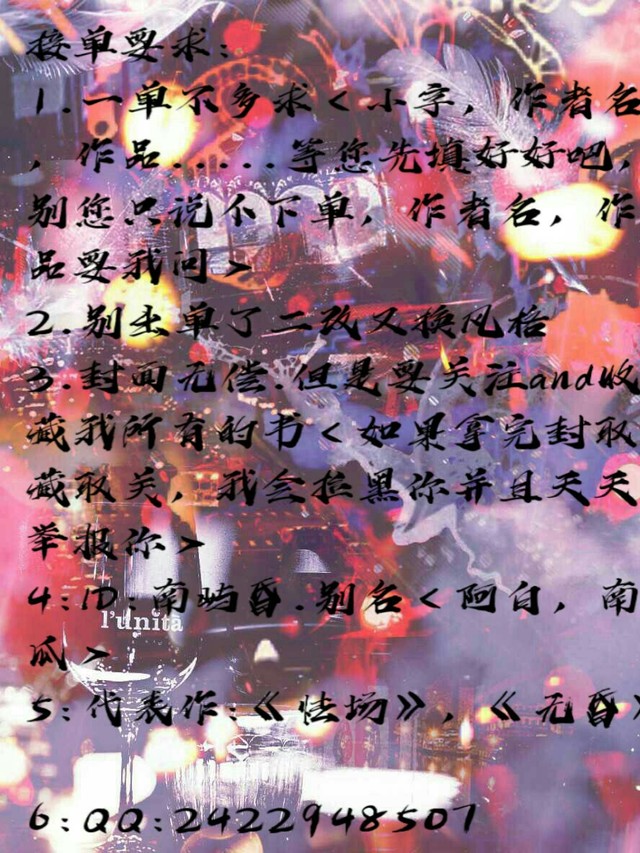 接单要求:
1.一单不多求<小字，作者名
，作品.....等您先填好好吧，
别您只说个下单，作者名，作
品要我问>
2.别出单了二改又换风格
3.封面无偿.但是要关注and收
藏我所有的书<如果拿完封取
藏取关，我会拉黑你并且天天
举报你>
4:ID:南屿昏.别名<阿白，南
l'unità
瓜>
5:代表作:《怯场》，《无昏》
6:QQ:2422948507